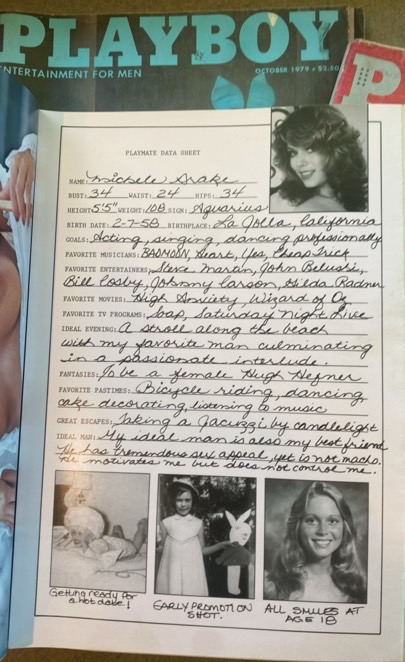 PLAYBOY
ENTERTAINMENT FOR MEN
OCTOBER 1979 • $2.50
P
PLAYMATE DATA SHEET
NAME: Michele Drake
BUST: 34 WAIST: 24 HIPS: 34
HEIGHT: 5'5" WEIGHT: 108 SIGN: Aquarius
BIRTH DATE: 2-7-58 BIRTHPLACE: La Jolla, California
GOALS: Acting, singing, dancing professionally
FAVORITE MUSICIANS: BADMOON, Heart, Yes, Cheap Trick
FAVORITE ENTERTAINERS: Steve Martin, John Belushi,
Bill Cosby, Johnny Carson, Gilda Radner
FAVORITE MOVIES: High Anxiety, Wizard of Oz
FAVORITE TV PROGRAMS: Soap, Saturday Night Live
IDEAL EVENING: A stroll along the beach
with my favorite man culminating
in a passionate interlude.
FANTASIES: To be a female Hugh Hefner
FAVORITE PASTIMES: Bicycle riding, dancing,
cake decorating, listening to music
GREAT ESCAPES: Taking a Jacuzzi by candlelight
IDEAL MAN: My ideal man is also my best friend
He has tremendous sex appeal, yet is not macho.
He motivates me but does not control me.
Getting ready for
a hot date!
EARLY PROMOTION
SHOT.
ALL SMILES AT
AGE 18